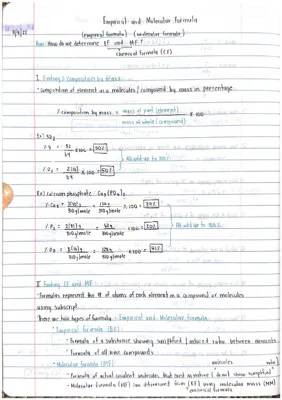 Empirical and Molecular Formula
(empirical formula) (molecular formula)
How do we determine EF and MF?
chemical formula (CF)
I Finding % Composition by Mass
Composition of element in a molecules / compound by mass in percentage.
% composition by mass = mass of part (element) x 100
mass of whole (compound)
Ex) SO₂
% S = 32 x 100 = 50%
64
All add up to 100%
% O₂ = 2(16) x 100 = 50%
64
Ex) Calcium phosphate: Ca₃(PO₄)₂
310 g/mole 310 g/mole x 100 =
All add up to 100%
310 g/mole 310 g/mole x 100 = 20%
310 g/mole 310 g/mole x 100 = 41%
II Finding EF and MF
Formulas represent the # of atoms of each element in a compound or molecules
using subscript.
There are two types of formula - Empirical and Molecular formula
Empirical formula (EF)
Formula of a substance showing simplified / reduced ratio between elements
Formula of all ionic compounds
Molecular formula (MF)
molecules
Formula of actual covalent molecules that exist in nature (do not show simplified
ratio)
Molecular formula (MF) can determined from (EF) using molecular mass (MM)
empirical formula